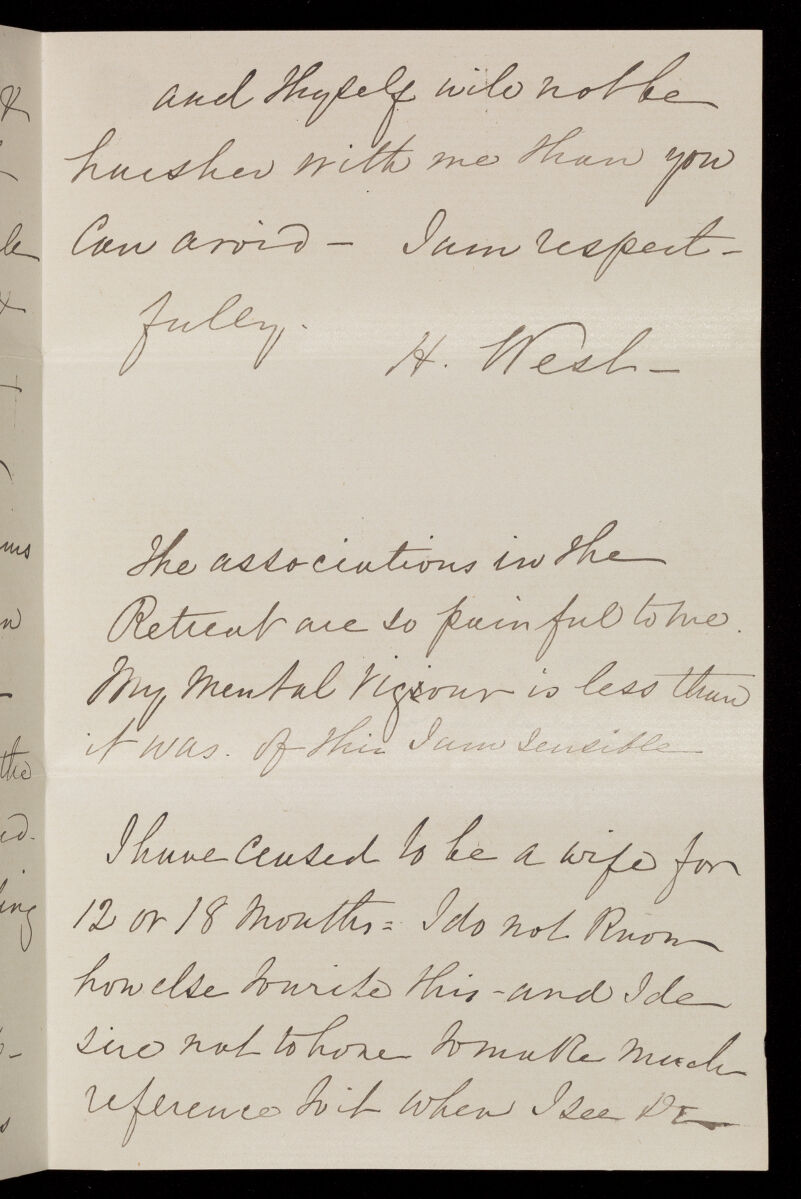 and Thyself will not be
harsher with me than you
Can avoid - I am respect-
fully.
H. West -
The associations in the
Retreat are so painful to me.
My Mental Vigour is less than
it was. Of this I am sensible
I have ceased to be a wife for
12 or 18 Months = I do not Know
how else to write this - and I de
sire not to have to make much
reference to it when I see Dr